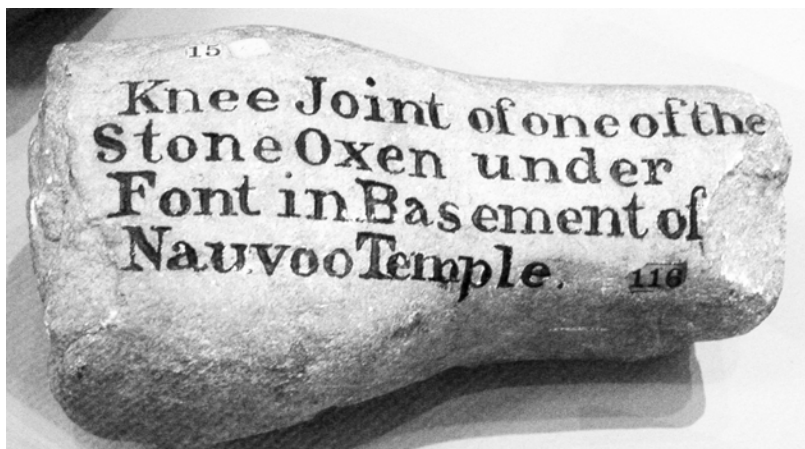 15
Knee Joint of one of the
Stone Oxen under
Font in Basement of
Nauvoo Temple. 116